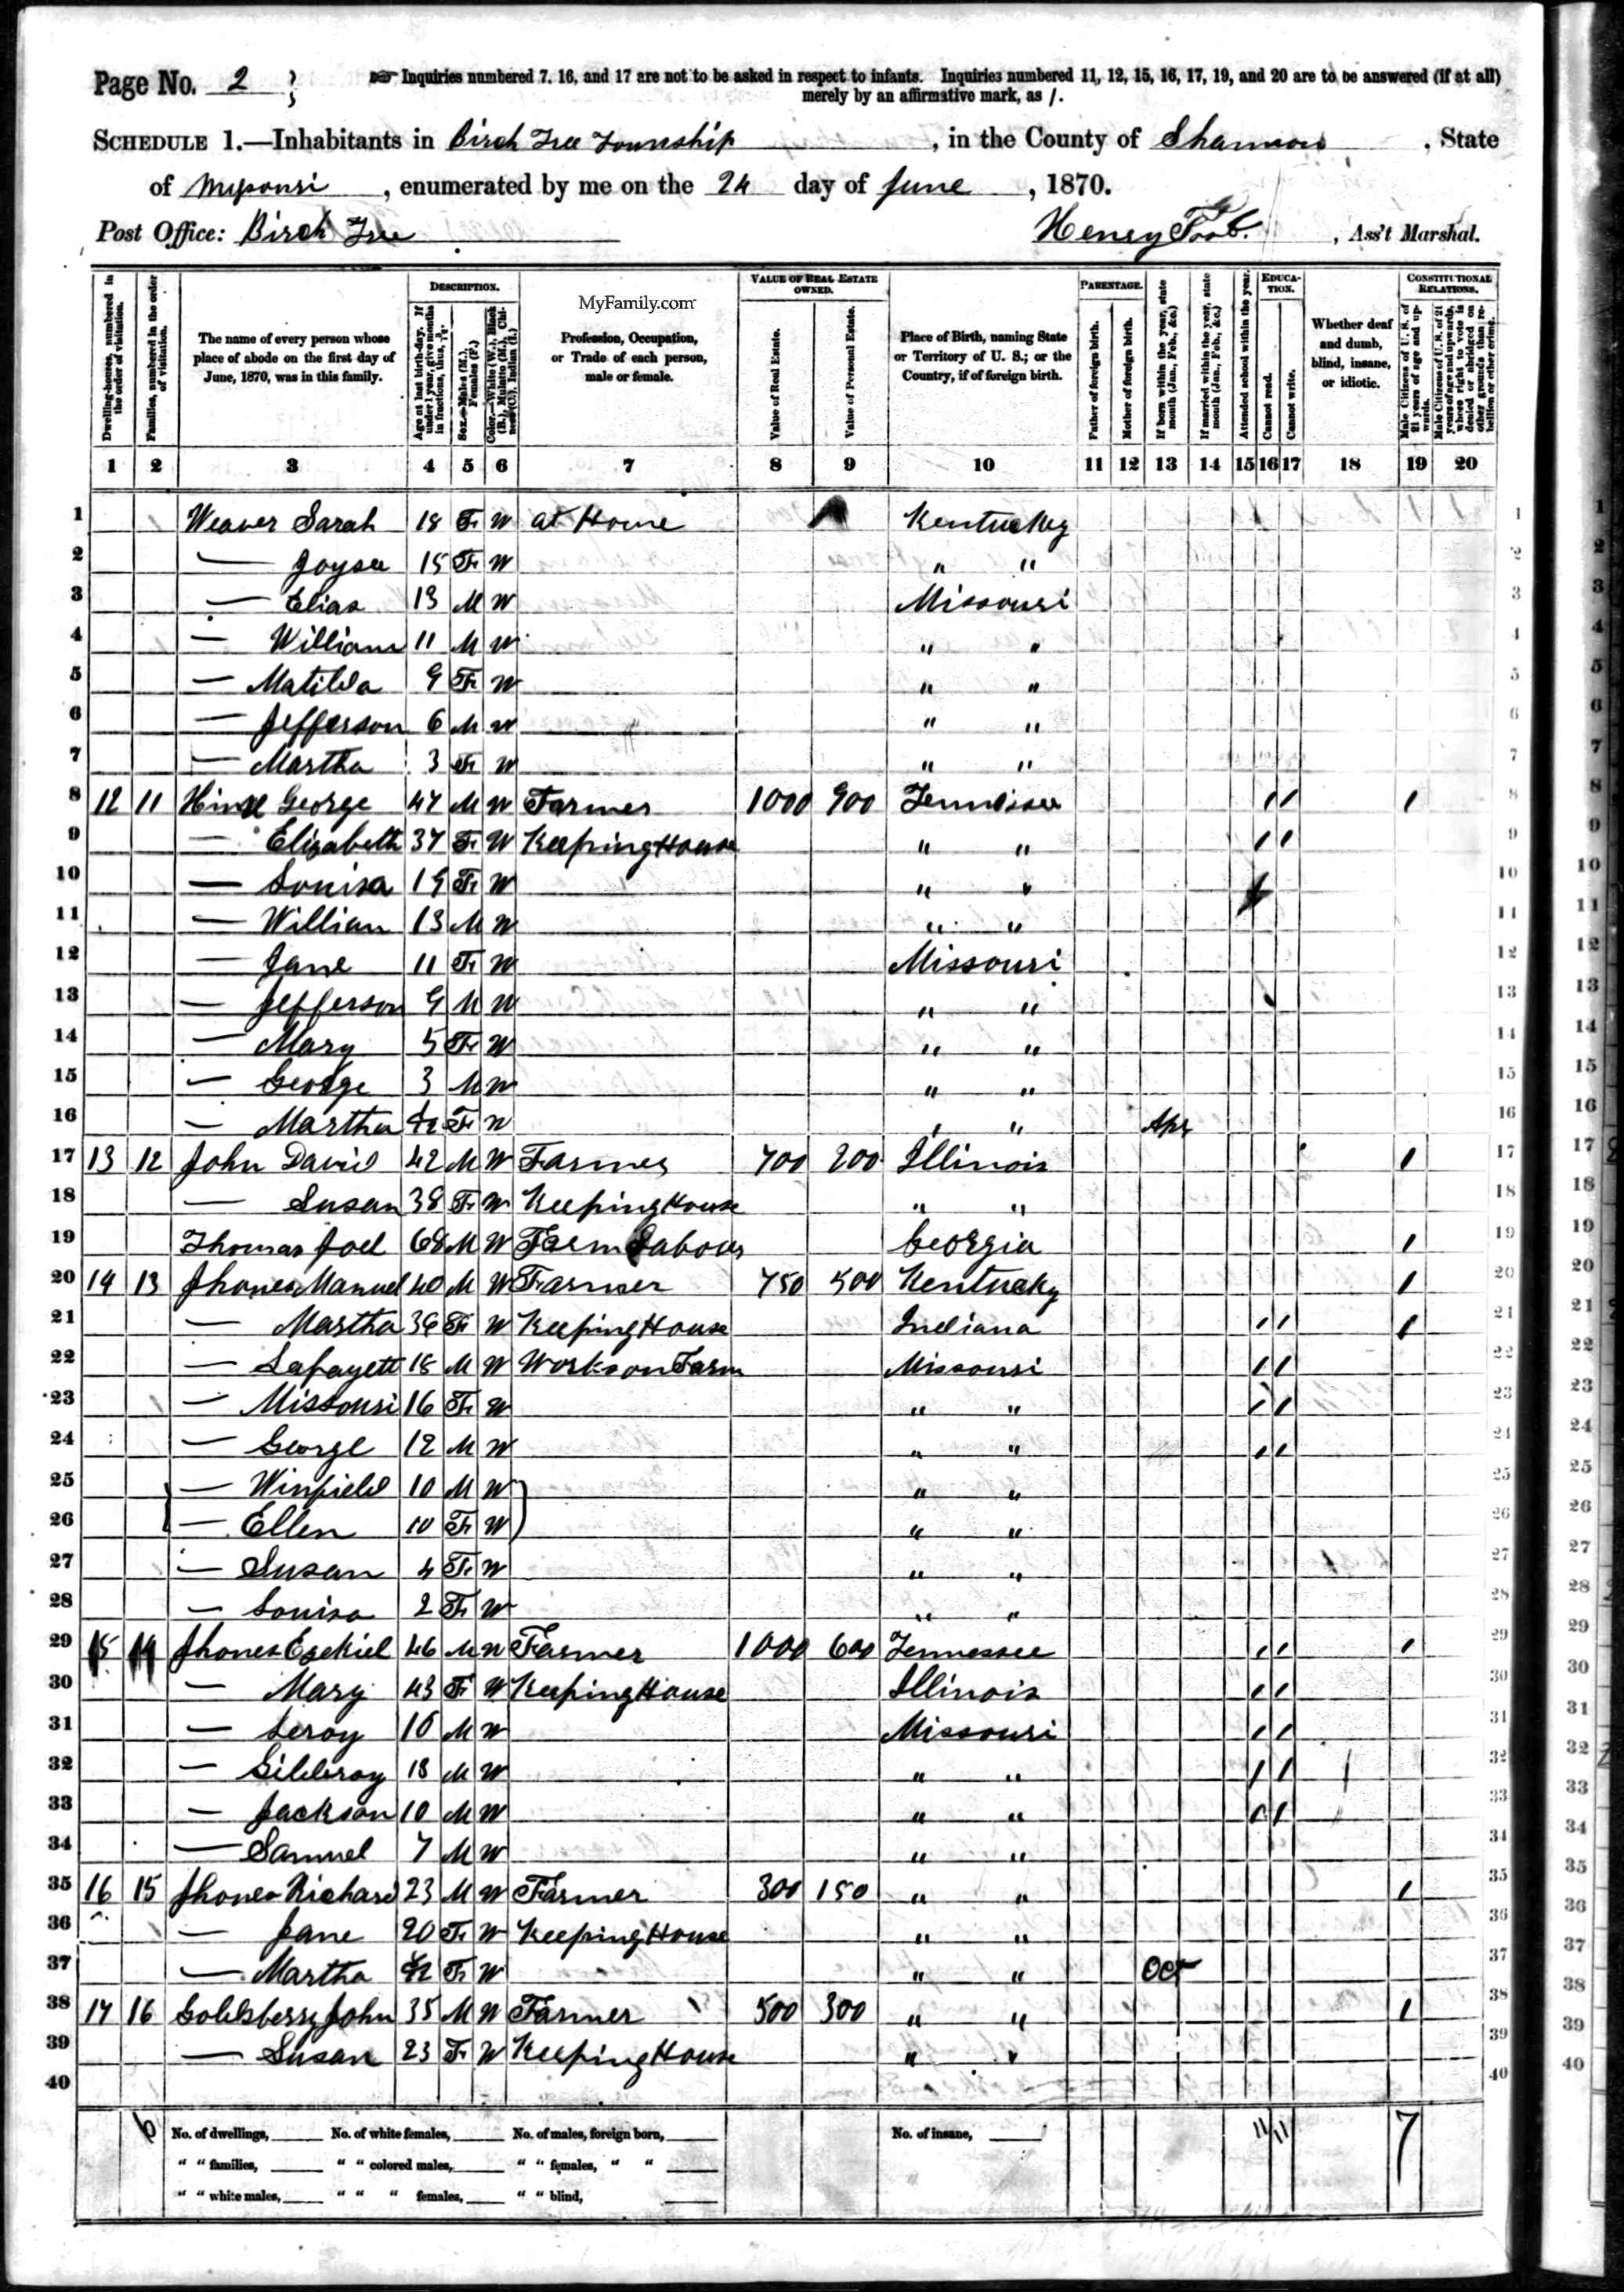 Page No. 2
Inquiries numbered 7, 16, and 17 are not to be asked in respect to infants. Inquiries numbered 11, 12, 15, 16, 17, 19, and 20 are to be answered (if at all)
merely by an affirmative mark, as /.
SCHEDULE 1.—Inhabitants in Birch Tree Township, in the County of Shannon, State
of Missouri, enumerated by me on the 24 day of June, 1870.
Post Office: Birch Tree Henry, Ass't Marshal.
DESCRIPTION. VALUE OF REAL ESTATE OWNED. PARENTAGE. EDUCATION. CONSTITUTIONAL RELATIONS.
MyFamily.com
Dwelling-houses, numbered in the order of visitation.
Families, numbered in the order of visitation.
The name of every person whose place of abode on the first day of June, 1870, was in this family.
Age at last birth-day. If under 1 year, give months in fractions, thus, 3/12.
Sex.—Males (M.), Females (F.)
Color.—White (W.), Black (B.), Mulatto (M.), Chinese (C.), Indian (I.)
Profession, Occupation, or Trade of each person, male or female.
Value of Real Estate.
Value of Personal Estate.
Place of Birth, naming State or Territory of U. S.; or the Country, if of foreign birth.
Father of foreign birth.
Mother of foreign birth.
If born within the year, state month (Jan., Feb., &c.)
If married within the year, state month (Jan., Feb., &c.)
Attended school within the year.
Cannot read.
Cannot write.
Whether deaf and dumb, blind, insane, or idiotic.
Male Citizens of U. S. of 21 years of age and upwards.
Male Citizens of U. S. of 21 years of age and upwards, whose right to vote is denied or abridged on other grounds than rebellion or other crime.
1 2 3 4 5 6 7 8 9 10 11 12 13 14 15 16 17 18 19 20
1 Weaver Sarah 18 F W at Home Kentucky 1
2 — Joysee 15 F W " " 2
3 — Elias 13 M W Missouri 3
4 — William 11 M W " " 4
5 — Matilda 9 F W " " 5
6 — Jefferson 6 M W " " 6
7 — Martha 3 F W " " 7
8 12 11 George 47 M W Farmer 1000 900 Tennessee / / / 8
9 — Elizabeth 37 F W Keeping House " " / / 9
10 — Louisa 19 F W " " 10
11 — William 13 M W " " 11
12 — Jane 11 F W Missouri 12
13 — Jefferson 9 M W " " 13
14 — Mary 5 F W " " 14
15 — George 3 M W " " 15
16 — Martha F W " " Apr 16
17 13 12 John David 42 M W Farmer 700 200 Illinois / 17
18 — Susan 38 F W Keeping House " " 18
19 Thomas Joel 68 M W Farm Labour Georgia / 19
20 14 13 Jhones Manuel 40 M W Farmer 750 500 Kentucky / 20
21 — Martha 36 F W Keeping House Indiana / / / 21
22 — Lafayett 18 M W Works on Farm Missouri / / 22
23 — Missouri 16 F W " " / / 23
24 — George 12 M W " " / / 24
25 — Winfield 10 M W " " 25
26 — Ellen 10 F W " " 26
27 — Susan 4 F W " " 27
28 — Louisa 2 F W " " 28
29 15 14 Jhones Ezekiel 46 M W Farmer 1000 600 Tennessee / / / 29
30 — Mary 43 F W Keeping House Illinois / / 30
31 — Leroy 16 M W Missouri / / 31
32 — Gilderoy 13 M W " " / / 32
33 — Jackson 10 M W " " / / 33
34 — Samuel 7 M W " " 34
35 16 15 Jhones Richard 23 M W Farmer 300 150 " " / 35
36 — Jane 20 F W Keeping House " " 36
37 — Martha F W " " Oct 37
38 17 16 Goldsberry John 35 M W Farmer 500 300 " " / 38
39 — Susan 23 F W Keeping House " " 39
40 40
6 No. of dwellings, No. of white females, No. of males, foreign born, No. of insane, 11 11 7
" " families, " " colored males, " " females, " "
" " white males, " " " females, " " blind,